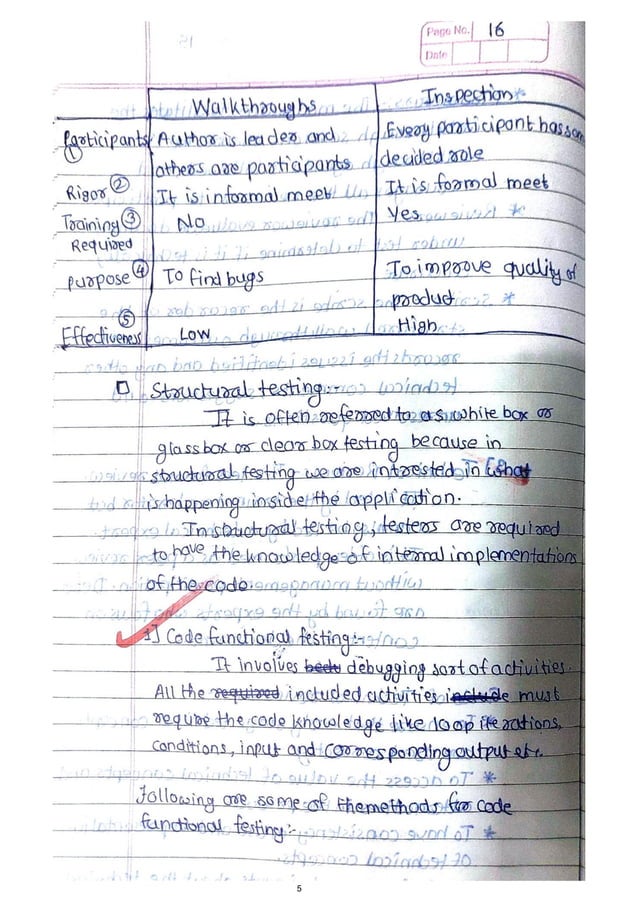 Page No. 16
Date
Walkthroughs Inspection
Participants Author is leader and Every participant has an
① others are participants decided role
Rigor ② It is informal meet It is formal meet
Training ③ No Yes
Required
Purpose ④ To find bugs To improve quality of
product
⑤
Effectiveness Low High
Structural testing :-
It is often referred to as white box or
glass box or clear box testing because in
structural testing we are interested in what
is happening inside the application.
In structural testing, testers are required
to have the knowledge of internal implementations
of the code
1] Code functional testing :-
It involves debugging sort of activities.
All the required included activities include must
require the code knowledge like loop iterations,
conditions, input and corresponding output etc.
Following are some of the methods for code
functional testing :-
5